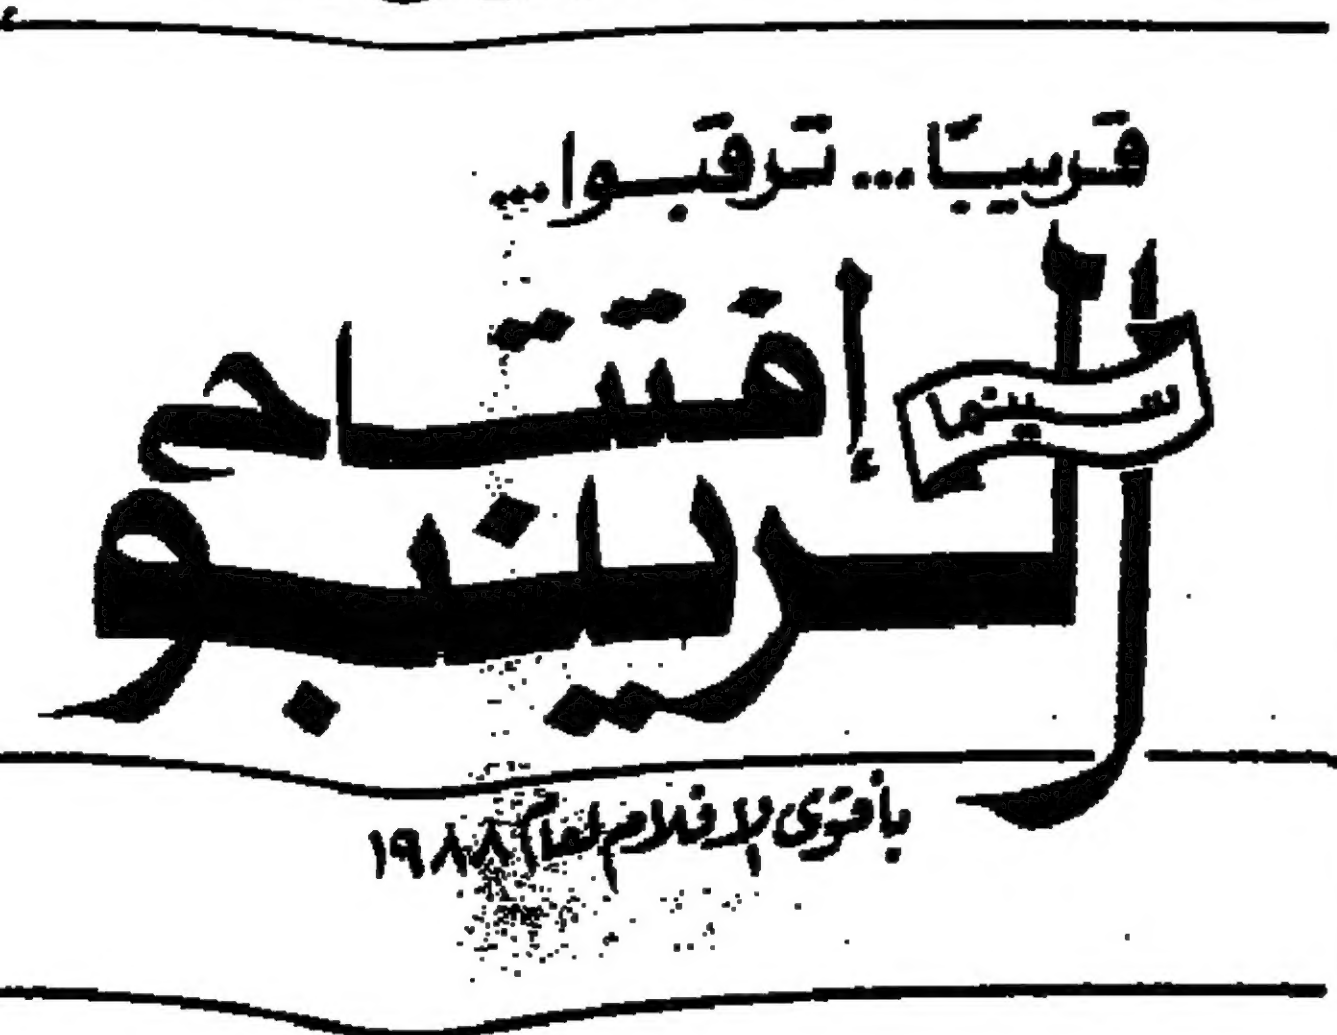 قريبًا... ترقبوا...
إفتتاح
سينما
الرينبو
بأقوى الإفلام لعام ١٩٨٨